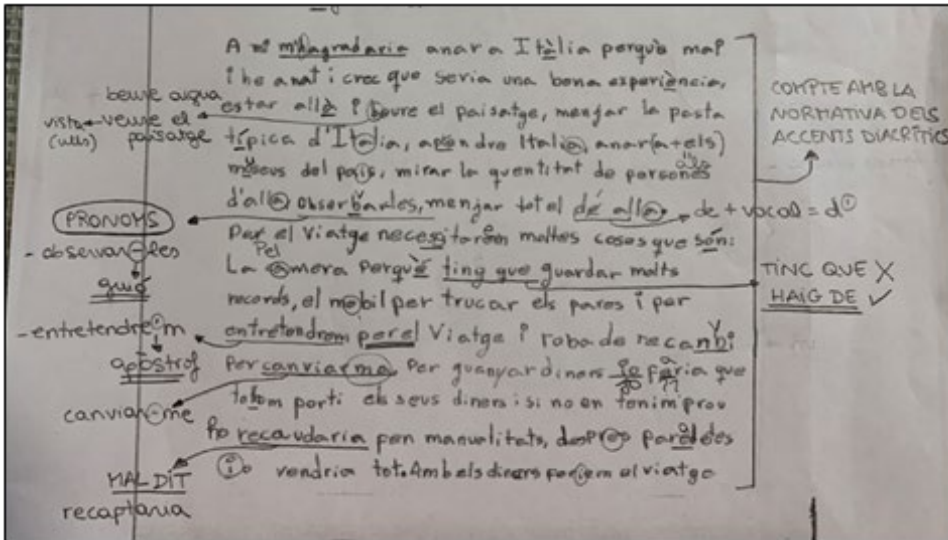 A mi m'hagradaria anar a Itàlia perquè mai
i he anat i crec que seria una bona experiència,
estar allà i beure el paisatge, menjar la pasta
típica d'Italia, apendre Italia, anar(a+els)
museus del pais, mirar la quentitat de persones
d'alla obserbarles, menjar tot el de alla.
Per el viatge necesitarem moltes coses que són:
Pel
La camera perquè ting que guardar molts
records, el mobil per trucar els pares i per
entretendrem per el viatge i roba de recanbi
per canviarme. Per guanyar diners jo faria que
tothom porti els seus diners i si no en tenim prou
ho recaudaria pen manualitats, despres
io vendria tot. Amb els diners el viatge
beure aigua
veure el paisatge
vista (ulls)
PRONOMS
- observar-les
guió
- entretendre'm
apòstrof
canviar-me
MAL DIT
recaptaria
COMPTE AMB LA
NORMATIVA DELS
ACCENTS DIACRÍTICS
de + vocal = d'
TINC QUE X
HAIG DE ✓